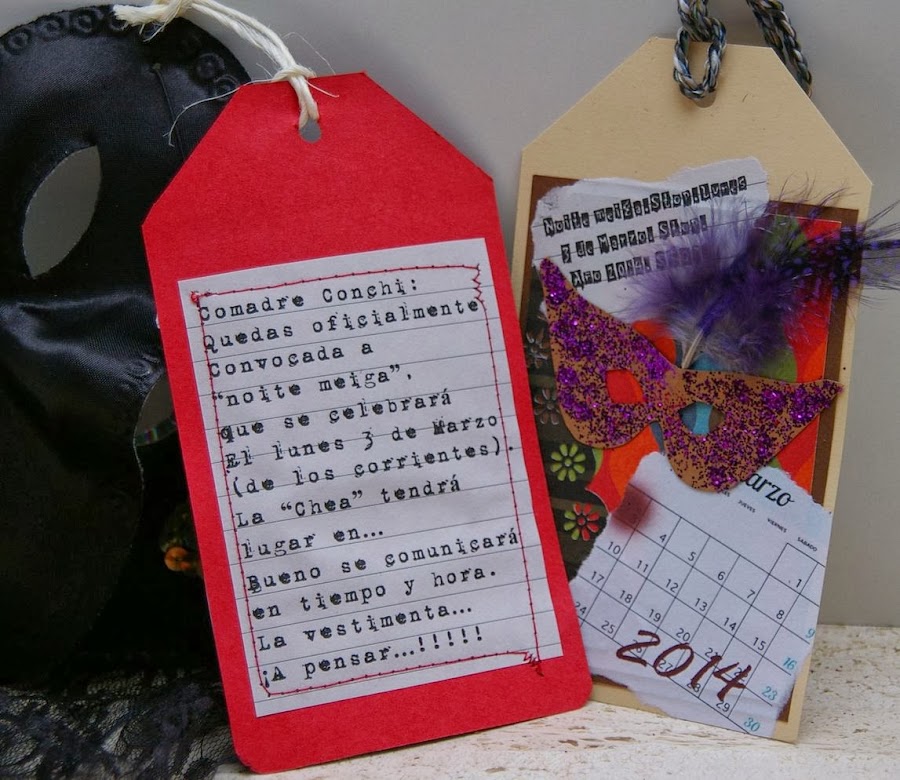 Comadre Conchi:
Quedas oficialmente
convocada a
"noite meiga",
que se celebrará
El lunes 3 de Marzo
(de los corrientes).
La "Chea" tendrá
lugar en...
Bueno se comunicará
en tiempo y hora.
La vestimenta...
¡A pensar...!!!!!
Noite meiga.Stop.Lunes
3 de Marzo. Stop.
Año 2014. Stop.
arzo
JUEVES VIERNES SABADO
1
4 5 6 7 8 9
10 12 13 14 15 16
17 18 19 20 23
24 25 28 29 30
2014